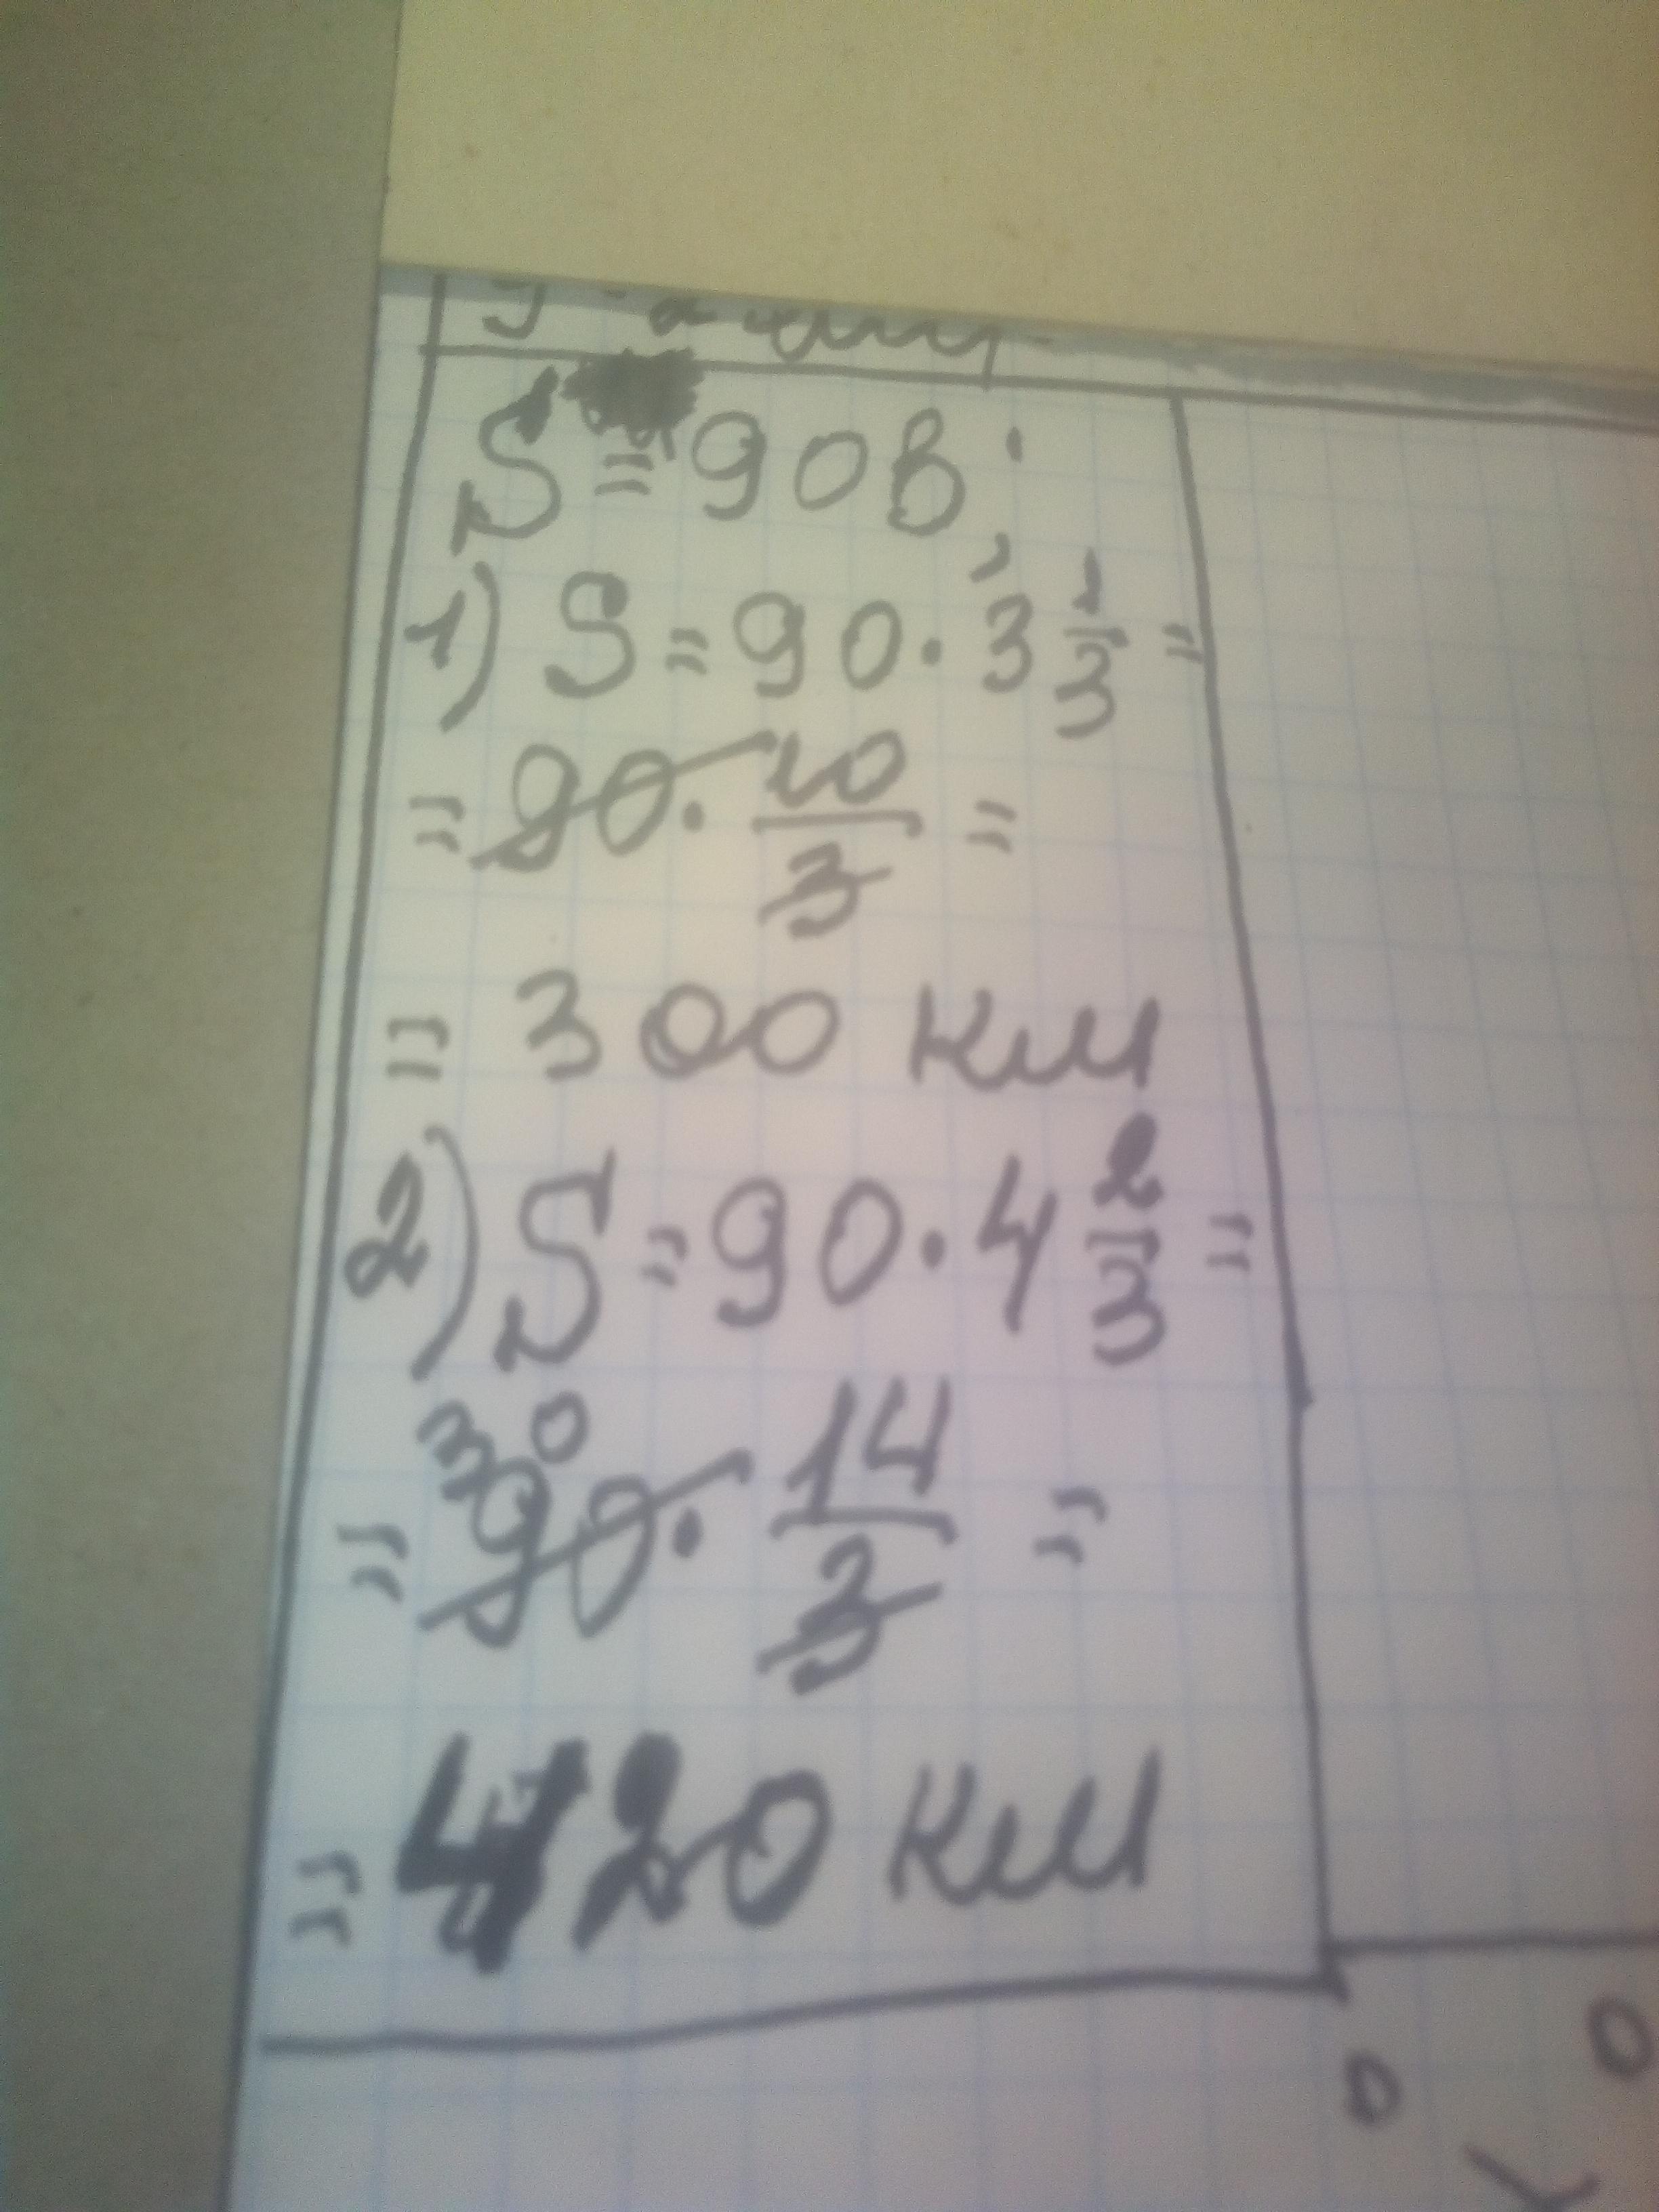 S = 90в;
1) S = 90 · 3 1/3 =
= 90 · 10/3 =
= 300 км
2) S = 90 · 4 2/3 =
30
= 90 · 14/3 =
= 420 км